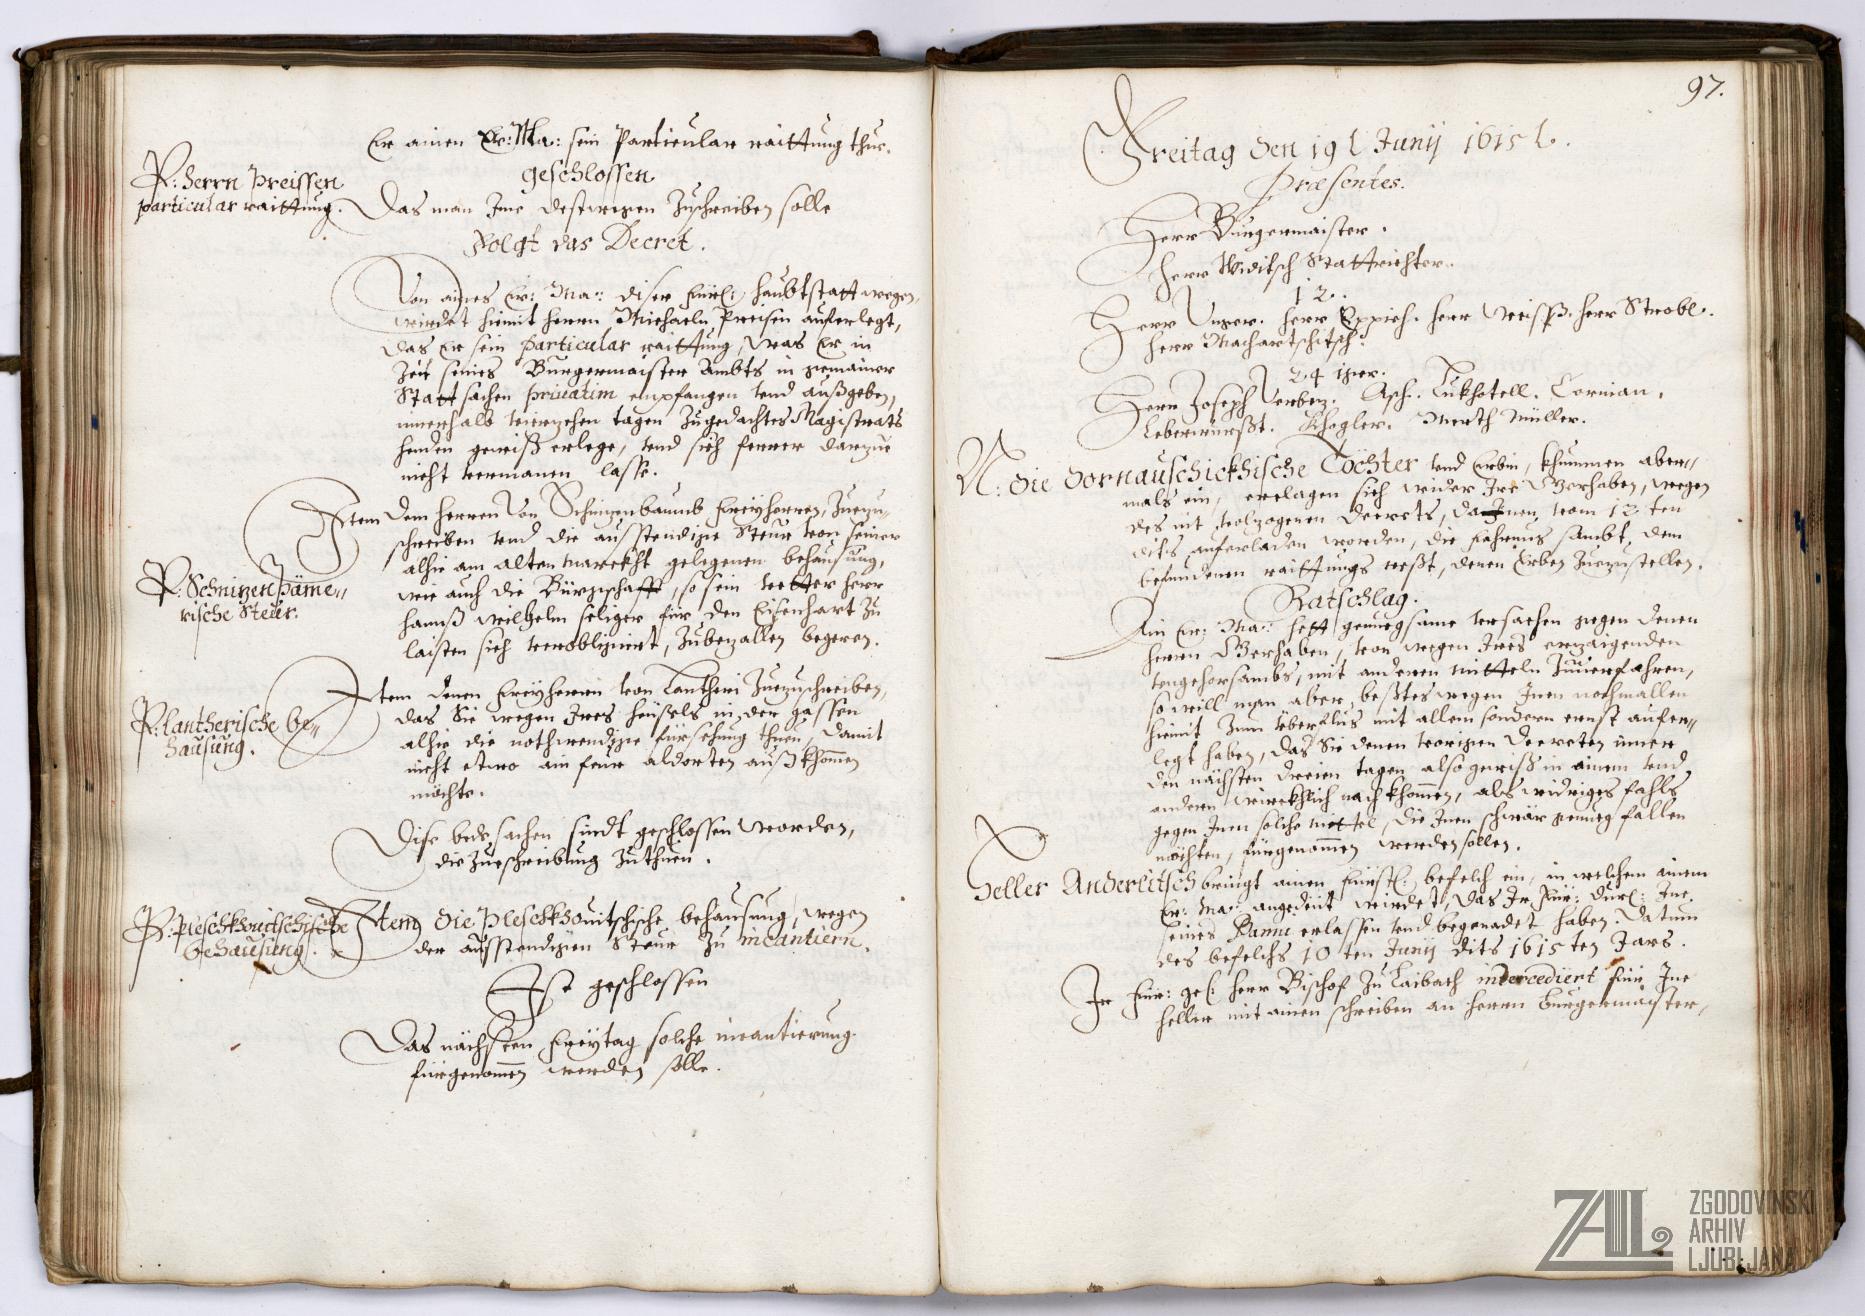 Er ainen Er: Ma: sein Particular raittung thue.
geschlossen
P: herrn Preissen
particular raittung.
Das man Ime destwegen Zuschreiben solle
Folgt das Decret.
Von aines Er: Ma: diser Fürl: haubtstatt wegen,
wirdet hiemit herrn Michaeln Preisen auferlegt,
das Er sein particular raittung, was Er in
Zeit seines Burgermaister Ambts in gemainer
Statt sachen priuatim empfangen vnd außgeben,
innerhalb vierzehen tagen Zu gedachtes Magistrats
henden gewiß erlege, vnd sich ferrer darzue
nicht vermanen lasse.
Item dem herren Von Schnizenbaumb Freyherren, Zuezu-
schreiben vnd die ausstendige Steur von seiner
alhie am alten Marckht gelegenen behausung,
wie auch die Bürgschafft, so sein vetter herr
hannß Wilhelm seliger für den Eisenhart Zu
laisten sich verobligiert, Zubezallen begeren.
P: Schnizenpäme„
rische Steur.
Item denen Freyherrn von Lantheri Zuezuschreiben,
das Sie wegen Ires heüsels in der gassen
alhie die nothwendige fürsehung thuen, damit
nicht etwo ain feur aldorten außkhomen
möchte.
P: lantherische be„
hausung.
Dise bede sachen sindt geschlossen worden,
die Zueschreibung Zuthuen.
P: Pleschkhouitschische
behausung.
Item die Pleschkhouitschische behausung, wegen
der ausstendigen Steur Zu incantiern.
Ist geschlossen
Das nächsten Freytag solche incantierung
fürgenomen werden solle.
97.
Freitag den 19 t Junij 1615 t.
Præsentes.
Herr Burgermaister.
Herr Widitsch Stattrichter.
12.
Herr Vnger. Herr Eppich. Herr Weiss. Herr Strobl.
Herr Machartschitsch.
24 iger.
Herr Joseph Verbez. Asch. Tukhotell. Cornian.
Leberwürßt. Khogler. Merth Müller.
N: die Dornauschickhische Töchter vnd Erbin, khummen aber„
mals ein, erclagen sich wider Ire Gerhaben, wegen
des nit volzogenen Decrets, da Inen vom 12 ten
dits auferladen worden, die fahrnus sambt dem
befundenen raittungs resst, denen Erben Zuezustellen.
Ratschlag.
Ain Er: Ma: hett genuegsame vrsachen gegen denen
herrn Gerhaben, von wegen Ires erzaigenden
vngehorsambs, mit anderen mitteln Zuuerfahren,
so will man aber bestes wegen Inen nochmallen
hiemit Zum vberflus mit allem sondern ernst aufer„
legt haben, das Sie denen vorigen Decreten inner
den nächsten dreien tagen also gewiß in ainem vnd
andern würckhlich nach khomen, als widriges fahls
gegen Inen solche mittel, die Inen schwär genueg fallen
möchten, fürgenomen werden sollen.
Heller Anderlitsch bringt ainen Fürstl: befelch ein, in welchem ainem
Er: Ma: angedeut wirdet, das Ir Für: Durl: Ine
seines Banns erlassen vnd begenadet haben. Datum
des befelchs 10 ten Junij dits 1615 ten Jars.
Ir Für: gl: herr Bischof Zu Laibach intercediert für Ine
heller mit ainen schreiben an herrn Burgermaister,
ZAL
ZGODOVINSKI
ARHIV
LJUBLJANA